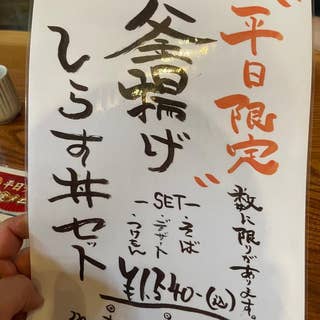 ”平日限定”
数に限りがあります。
釜揚げ
しらす丼セット
—SET—
・そば
・デザート
・つけもん
¥1,340-(込)
平日